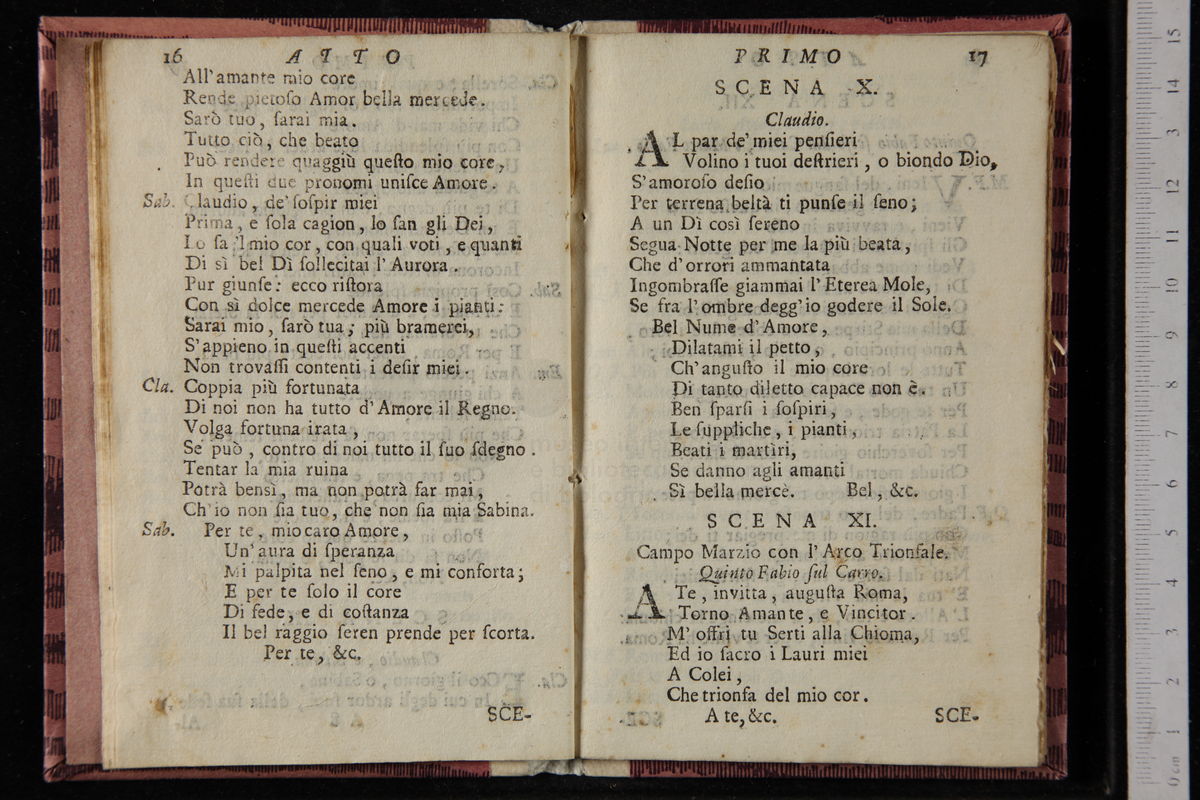 16 ATTO
All'amante mio core
Rende pietoſo Amor bella mercede.
Sarò tuo, ſarai mia.
Tutto ciò, che beato
Può rendere quaggiù queſto mio core,
In queſti due pronomi uniſce Amore.
Sab. Claudio, de' ſoſpir miei
Prima, e ſola cagion, lo ſan gli Dei,
Lo ſa 'l mio cor, con quali voti, e quanti
Di sì bel Dì ſollecitai l'Aurora.
Pur giunſe: ecco riſtora
Con sì dolce mercede Amore i pianti:
Sarai mio, ſarò tua; più bramerei,
S'appieno in queſti accenti
Non trovaſſi contenti i deſir miei.
Cla. Coppia più fortunata
Di noi non ha tutto d'Amore il Regno.
Volga fortuna irata,
Se può, contro di noi tutto il ſuo ſdegno.
Tentar la mia ruina
Potrà bensì, ma non potrà far mai,
Ch'io non ſia tuo, che non ſia mia Sabina.
Sab. Per te, mio caro Amore,
Un'aura di ſperanza
Mi palpita nel ſeno, e mi conforta;
E per te ſolo il core
Di fede, e di coſtanza
Il bel raggio ſeren prende per ſcorta.
Per te, &c.
SCE-
PRIMO 17
SCENA X.
Claudio.
AL par de' miei penſieri
Volino i tuoi deſtrieri, o biondo Dio,
S'amoroſo deſio
Per terrena beltà ti punſe il ſeno;
A un Dì così ſereno
Segua Notte per me la più beata,
Che d'orrori ammantata
Ingombraſſe giammai l'Eterea Mole,
Se fra l'ombre degg'io godere il Sole.
Bel Nume d'Amore,
Dilatami il petto,
Ch'anguſto il mio core
Di tanto diletto capace non è.
Ben ſparſi i ſoſpiri,
Le ſuppliche, i pianti,
Beati i martìri,
Se danno agli amanti
Sì bella mercè. Bel, &c.
SCENA XI.
Campo Marzio con l'Arco Trionfale.
Quinto Fabio ſul Carro.
A Te, invitta, auguſta Roma,
Torno Amante, e Vincitor.
M'offri tu Serti alla Chioma,
Ed io ſacro i Lauri miei
A Colei,
Che trionfa del mio cor.
A te, &c.
SCE-
15
14
13
12
11
10
9
8
7
6
5
4
3
2
1
0 cm